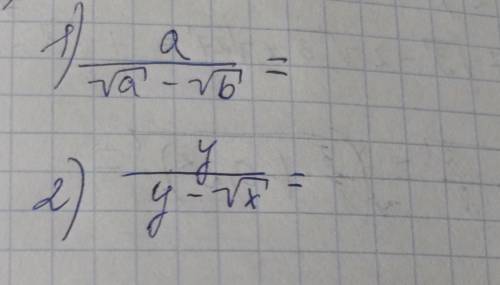 1) a/(√a - √b) =
2) y/(y - √x) =